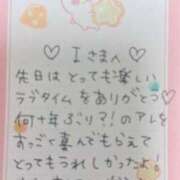 ♡ Iさまへ ♡
先日はとっても楽しい
ラブタイムをありがとう♡
何十年ぶり?!のアレを
すっごく喜んでもらえて
とってもうれしかったよ!